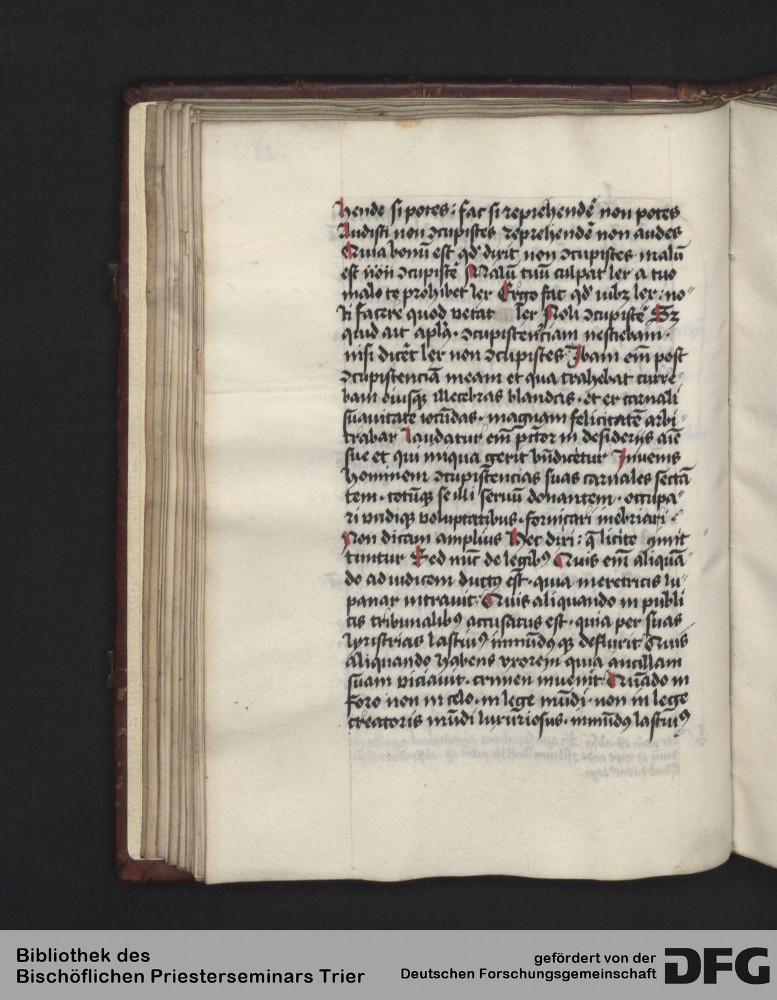 hende si potes: fac si reprehendē non potes
Audisti non ↄcupisces reprehendē non audes
Quia bonū est qd' dixit non ↄcupisces malū
est non ↄcupiscē Malū tuū culpat lex a tuo
malo te prohibet lex Ergo fac qd' iubꝫ lex: no-
li facere quod vetat lex Noli ↄcupiscē Sꝫ
quid ait apl's. ↄcupiscenciam nesciebam.
nisi dicēt lex non ↄcupisces Ibam eīm post
ↄcupiscenciā meam et qua trahebat curre-
bam eiusqꝫ illecebras blandas. et ex carnali
suauitate iocūdas. magnam felicitatē arbi
trabar Laudatur eīm pctōr in desiderijs aīe
sue et qui iniqua gerit bn̄dicetur Inuenis
hominem ↄcupiscencias suas carnales sectā
tem. totūqꝫ se illi seruū donantem. occupa-
ri vndiqꝫ voluptatibus. fornicari inebriari.
Non dicam amplius Hec dixi: q̄ licite ꝯmit
tuntur Sed nūc de legibꝰ Quis eīm aliquā
do ad iudicem ductꝰ est. quia meretricis lu-
panar intrauit. Quis aliquando in publi
cis tribunalibꝰ accusatus est. quia per suas
lyristrias lasciuꝰ inmūdꝰqꝫ defluxit Quis
aliquando habens vxorem quia ancillam
suam viciauit. crimen inuenit Quādo in
foro non in celo. in lege mūdi. non in lege
creatoris mūdi luxuriosus. inmūdꝰ lasciuꝰ
Bibliothek des
Bischöflichen Priesterseminars Trier
gefördert von der
Deutschen Forschungsgemeinschaft
DFG